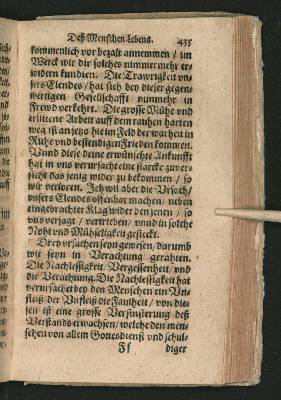 Deß Menschen Lebens. 435
kommenlich vor bezalt annemmen / im
Werck wir dir solches nimmermehr er-
widern kundten. Die Trawrigkeit vn-
sers Elendes / hat sich bey dieser gegen-
wertigen Gesellschafft nunmehr in
Frewd verkehrt. Die grosse Mühe vnd
erlittene Arbeit auff dem rauhen harten
weg ist an jetzo hie im Feld der warheit in
Ruhe vnd bestendigen Frieden kommen.
Vnnd diese deine erwünschte Ankunfft
hat in vns verursacht eine starcke zuver-
sicht das jenig wider zu bekommen / so
wir verloren. Ich wil aber die Vrsach /
vnsers Elendes offenbar machen / neben
eingebrachter Klag wider den jenen / so
vns verjagt / vertrieben / vnnd in solche
Noht vnd Mühseligkeit gesteckt.
Drey vrsachen seyn gewesen / darumb
wir seyn in Verachtung gerahten.
Die Nachlessigkeit / Vergessenheit, vnd
die Verachtung. Die Nachlessigkeit hat
verursachet bey den Menschen ein Vn-
fleiß / der Vnfleiß die Faulheit / von die-
sen ist eine grosse Verfinsterung deß
Verstands erwachsen / welche den men-
schen von allem Gottesdienst vnd schul-
Ff diger